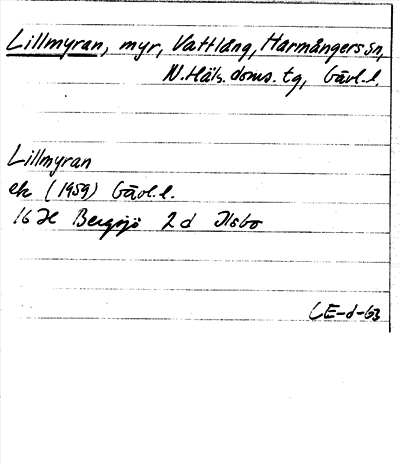 Lillmyran, myr, Vattlång, Harmångers sn,
N. Häls. doms. tg, Gävl. l.
Lillmyran
ek (1959) Gävl. l.
16 H Bergsjö 2 d Ilsbo
CE-d-63